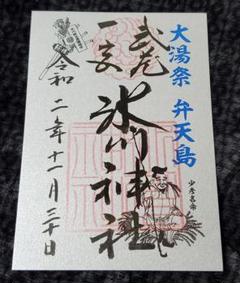 大湯祭 弁天島
武蔵
一宮
氷川神社
令和二年十一月三十日
少彦名命